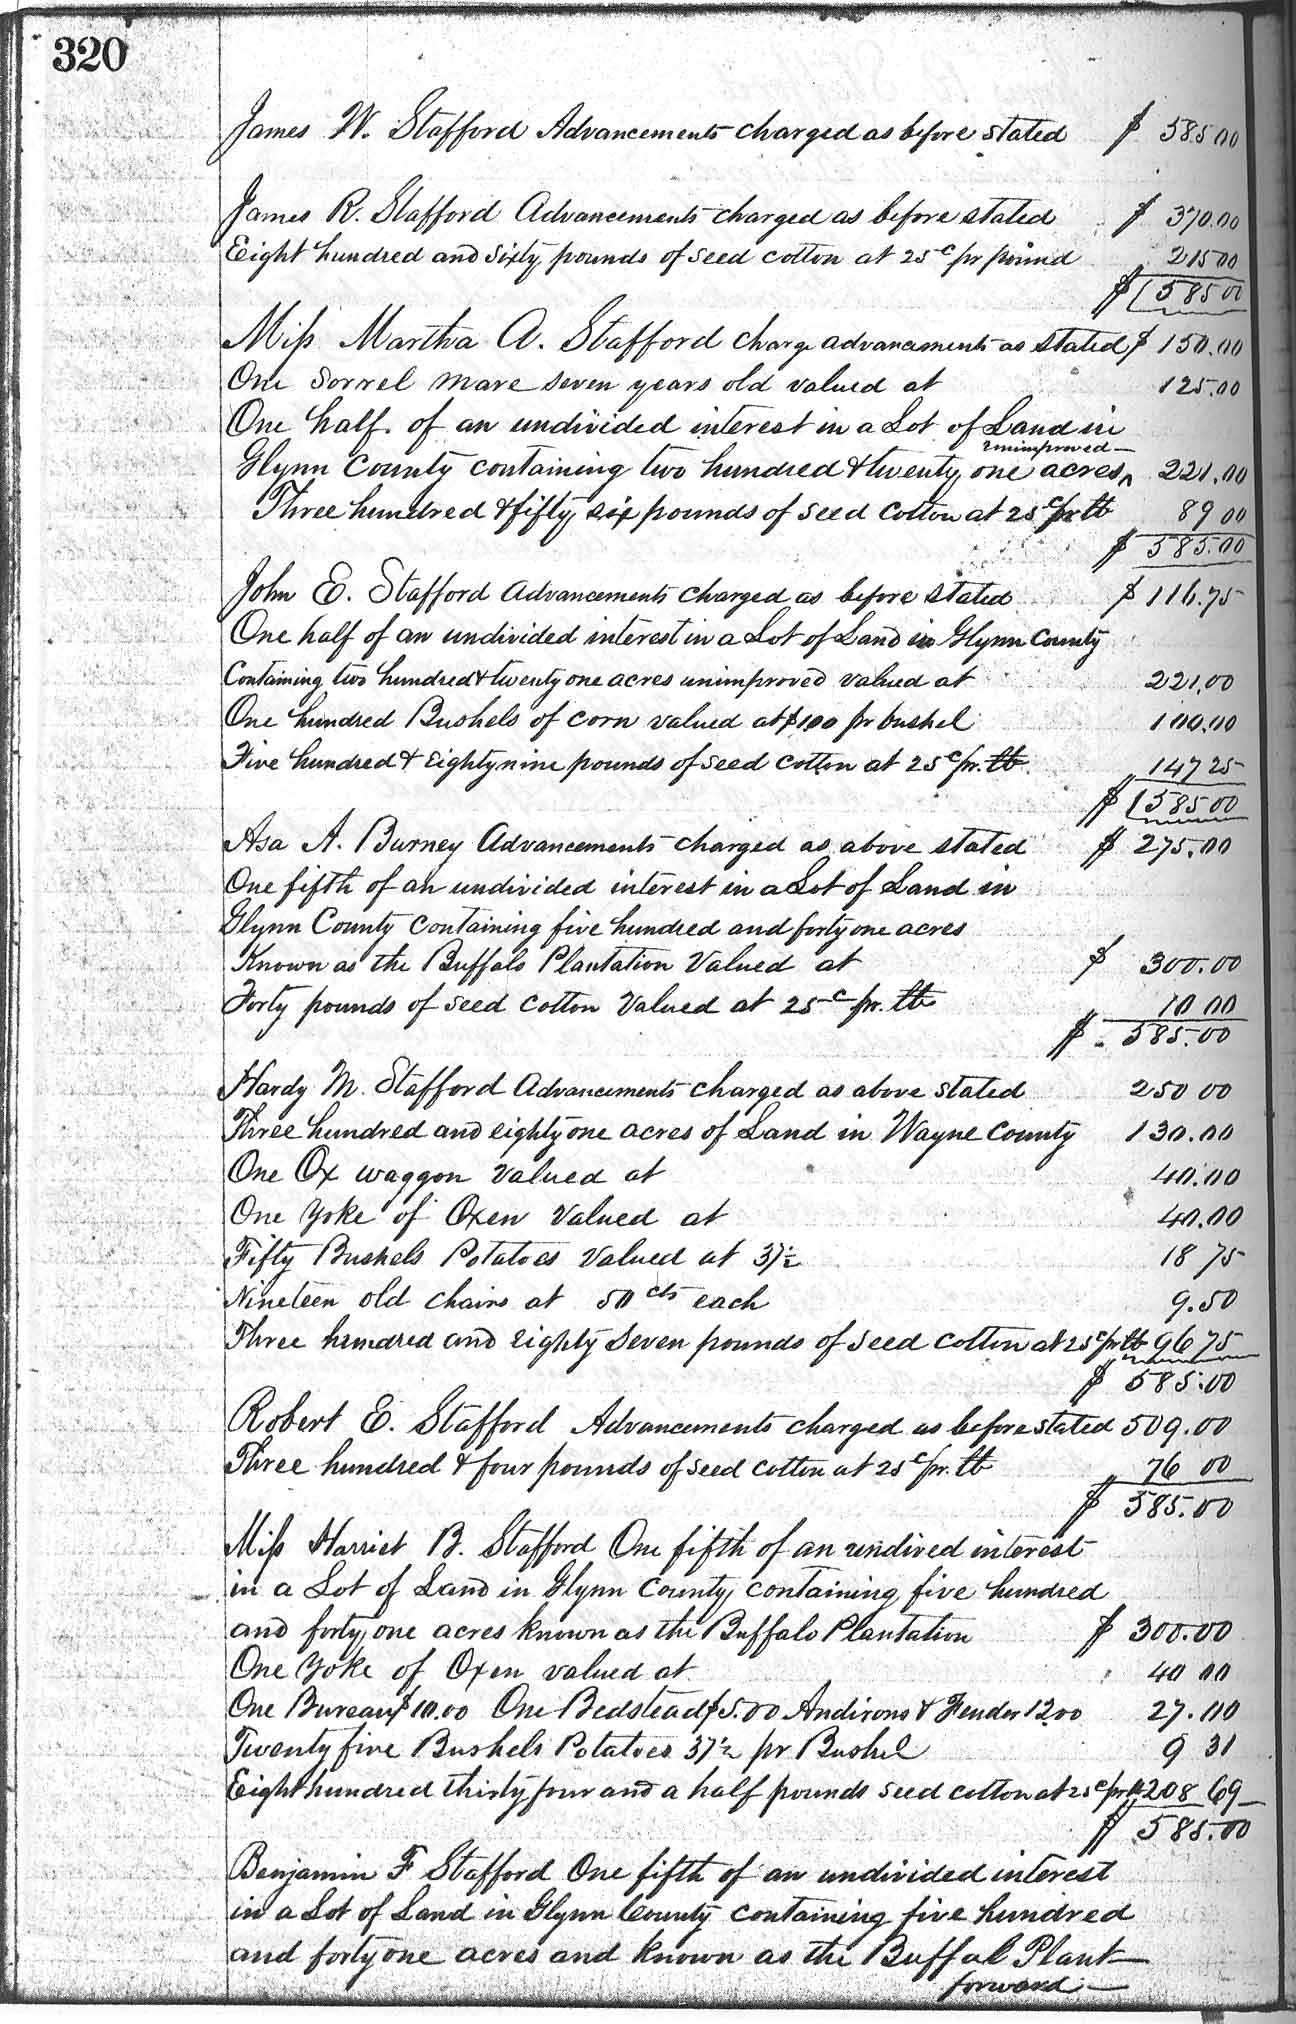 320
James W. Stafford Advancements charged as before stated $ 585.00
James R. Stafford Advancements charged as before stated $ 370.00
Eight hundred and sixty pounds of seed cotton at 25c pr pound 215 00
$ 585 00
Miss Martha A. Stafford charge advancements as stated $ 150.00
One Sorrel mare seven years old valued at 125.00
One half of an undivided interest in a Lot of Land in
unimproved
Glynn County containing two hundred & twenty one acres 221.00
Three hundred & fifty six pounds of seed cotton at 25c pr lb 89 00
$ 585.00
John E. Stafford Advancements charged as before stated $ 116.75
One half of an undivided interest in a Lot of Land in Glynn County
Containing two hundred & twenty one acres unimproved valued at 221.00
One hundred Bushels of corn valued at $1.00 pr bushel 100.00
Five hundred & Eighty nine pounds of seed cotton at 25c pr. lb 147 25
$ 585 00
Asa A. Burney Advancements charged as above stated $ 275.00
One fifth of an undivided interest in a Lot of Land in
Glynn County containing five hundred and forty one acres
Known as the Buffalo Plantation Valued at $ 300.00
Forty pounds of seed cotton Valued at 25c pr. lb 10 00
$ 585.00
Hardy M. Stafford Advancements charged as above stated 250 00
Three hundred and eighty one acres of Land in Wayne County 130.00
One Ox waggon valued at 40.00
One Yoke of Oxen valued at 40.00
Fifty Bushels Potatoes valued at 37½ 18 75
Nineteen old chairs at 50 cts each 9.50
Three hundred and eighty seven pounds of seed cotton at 25c pr lb 96 75
$ 585.00
Robert E. Stafford Advancements charged as before stated 509.00
Three hundred & four pounds of seed cotton at 25c pr. lb 76 00
$ 585.00
Miss Harriet B. Stafford One fifth of an undived interest
in a Lot of Land in Glynn County containing five hundred
and forty one acres known as the Buffalo Plantation $ 300.00
One Yoke of Oxen valued at 40 00
One Bureau $10.00 One Bedstead $5.00 Andirons & Fender 12.00 27.00
Twenty five Bushels Potatoes 37½ pr Bushel 9 31
Eight hundred thirty four and a half pounds seed cotton at 25c pr lb 208 69
$ 585.00
Benjamin F Stafford One fifth of an undivided interest
in a Lot of Land in Glynn County containing five hundred
and forty one acres and known as the Buffal Plant
forward